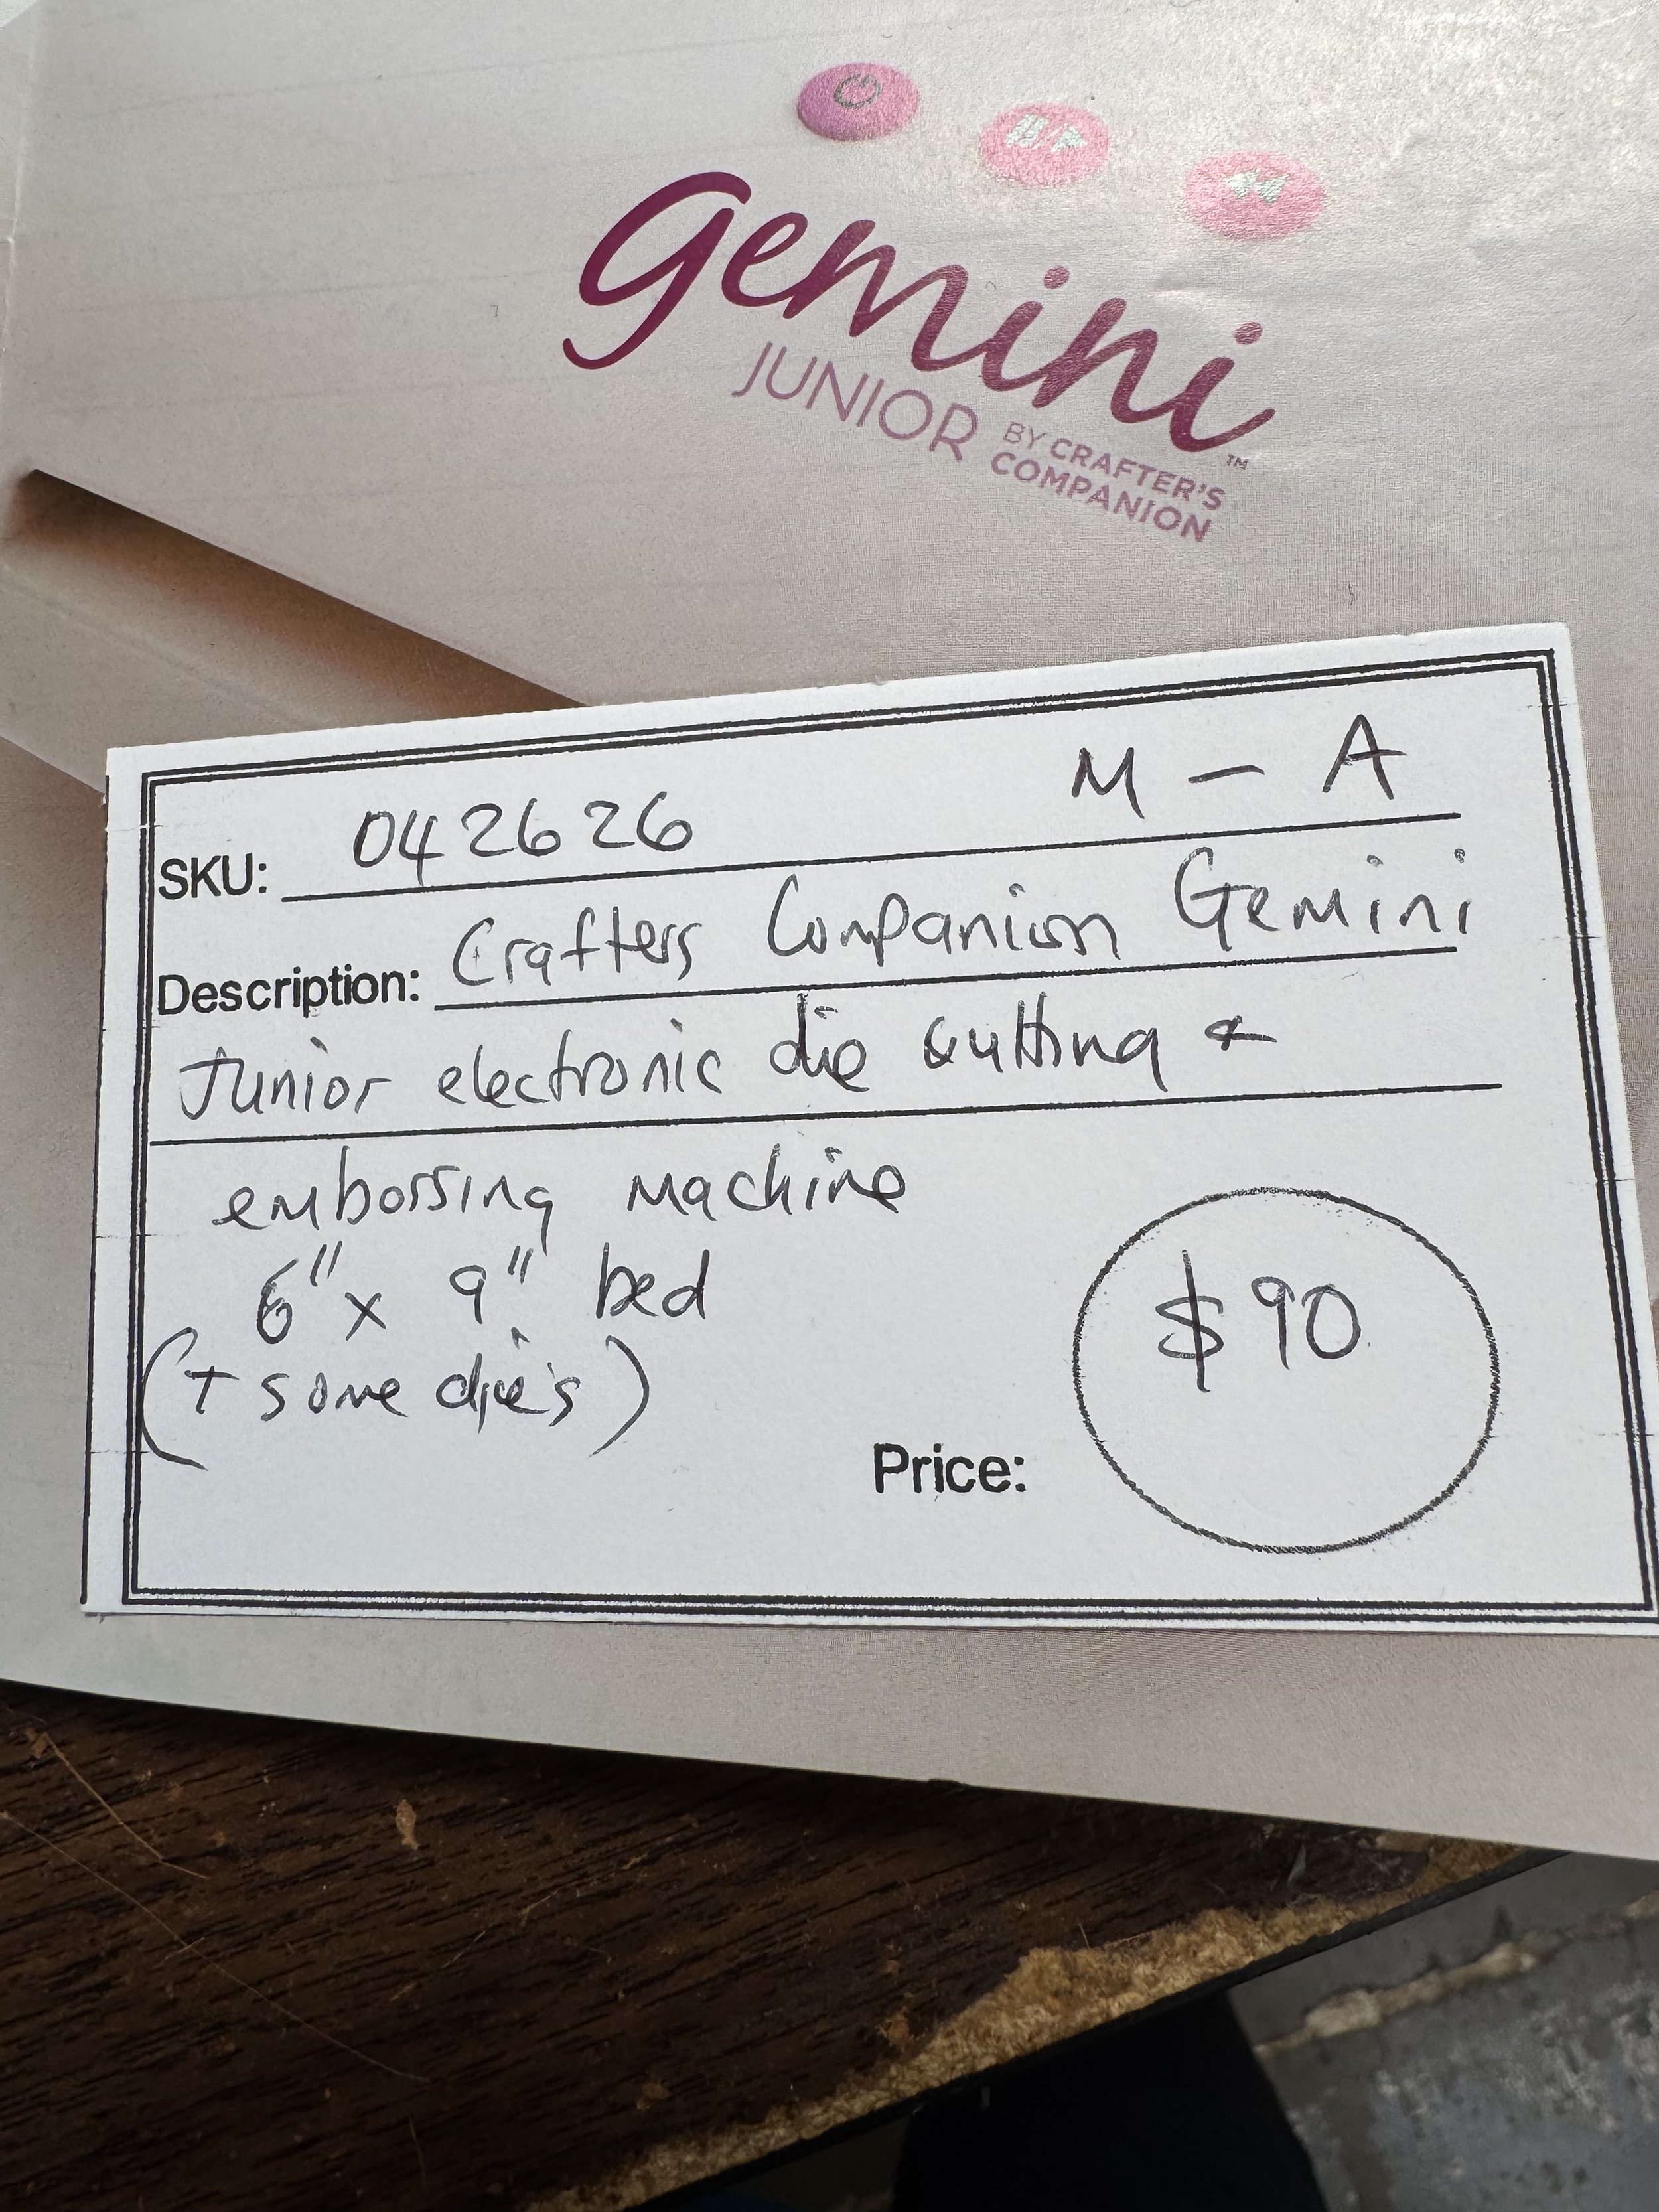 gemini™
JUNIOR BY CRAFTER'S
COMPANION
SKU: 042626 M - A
Description: Crafters Companion Gemini
Junior electronic die cutting &
embossing machine
6" x 9" bed
(+ some die's)
$90
Price: